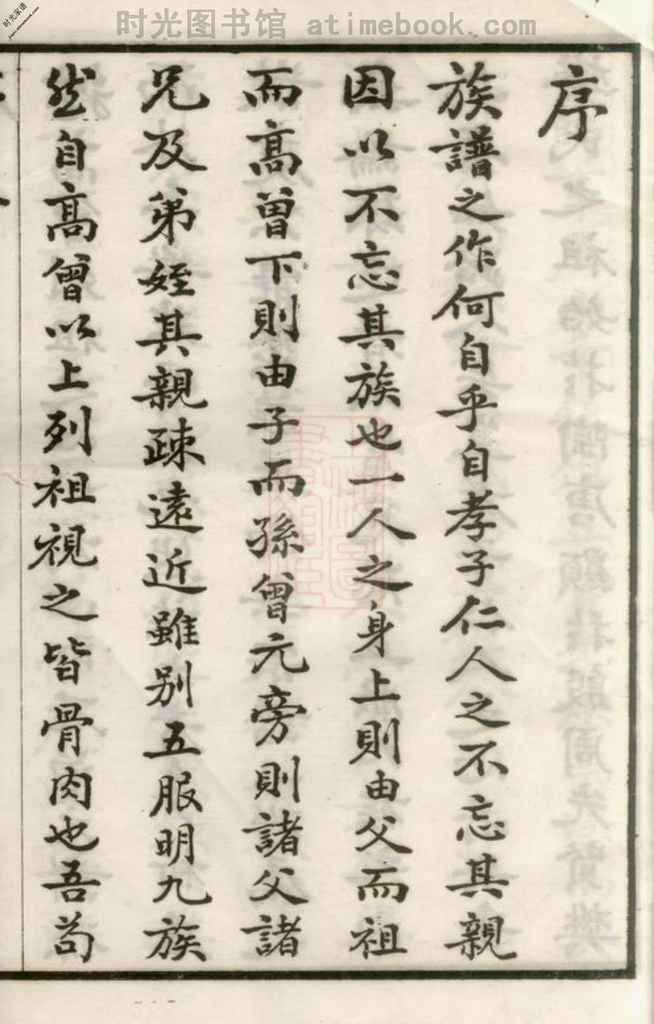 时光图书馆 - atimebook.com
时光家谱
序
族譜之作何自乎自孝子仁人之不忘其親
因以不忘其族也一人之身上則由父而祖
而高曾下則由子而孫曾元旁則諸父諸
兄及弟姪其親疎遠近雖别五服明九族
然自高曾以上列祖視之皆骨肉也吾苟